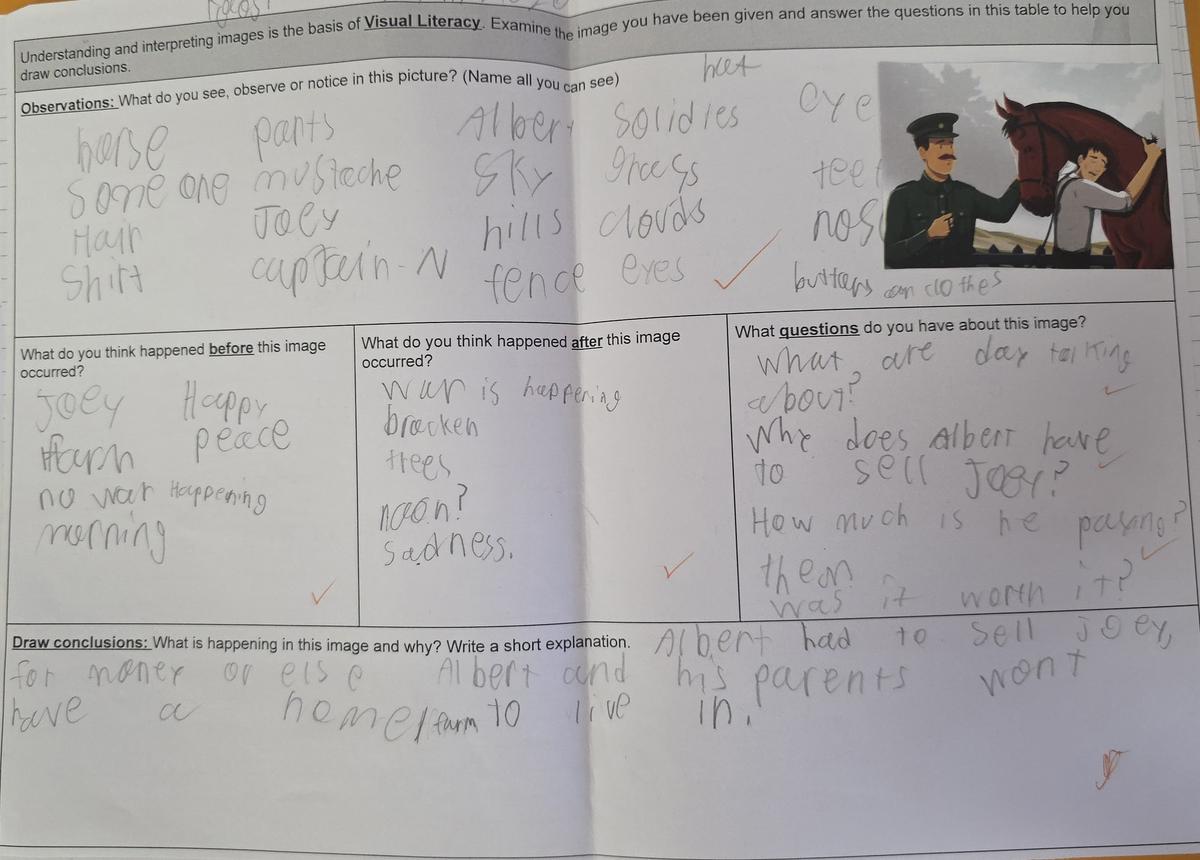 Understanding and interpreting images is the basis of Visual Literacy. Examine the image you have been given and answer the questions in this table to help you
draw conclusions.
Observations: What do you see, observe or notice in this picture? (Name all you can see)
hat
horse pants Albert Solidies eye
Some one mustache Sky grass teet
Hair Joey hills clouds nos
Shirt captain-N fence eyes
buttons on clothes
What do you think happened before this image
occurred?
Joey Happy
farm peace
no war Happening
morning
What do you think happened after this image
occurred?
war is happening
bracken
trees
noon?
sadness.
What questions do you have about this image?
What are day talking
about?
Why does Albert have
to sell Joey?
How much is he paying?
them
was it worth it?
Draw conclusions: What is happening in this image and why? Write a short explanation. Albert had to sell Joey,
for money or else Albert and his parents wont
have a home/farm to live in.